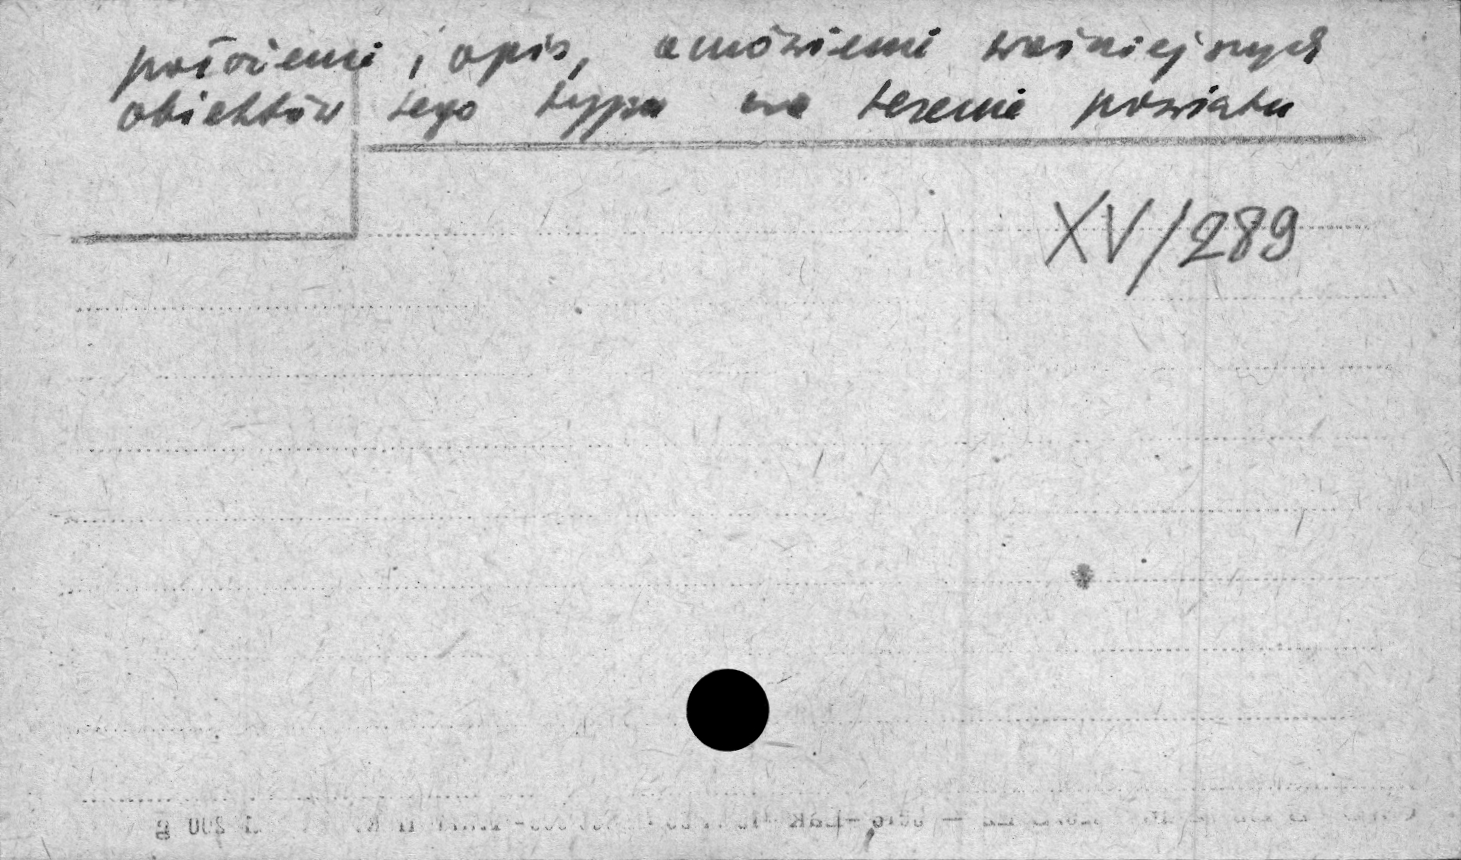 położenie i opis, omówienie ważniejszych
obiektów tego typu na terenie powiatu
XV/289